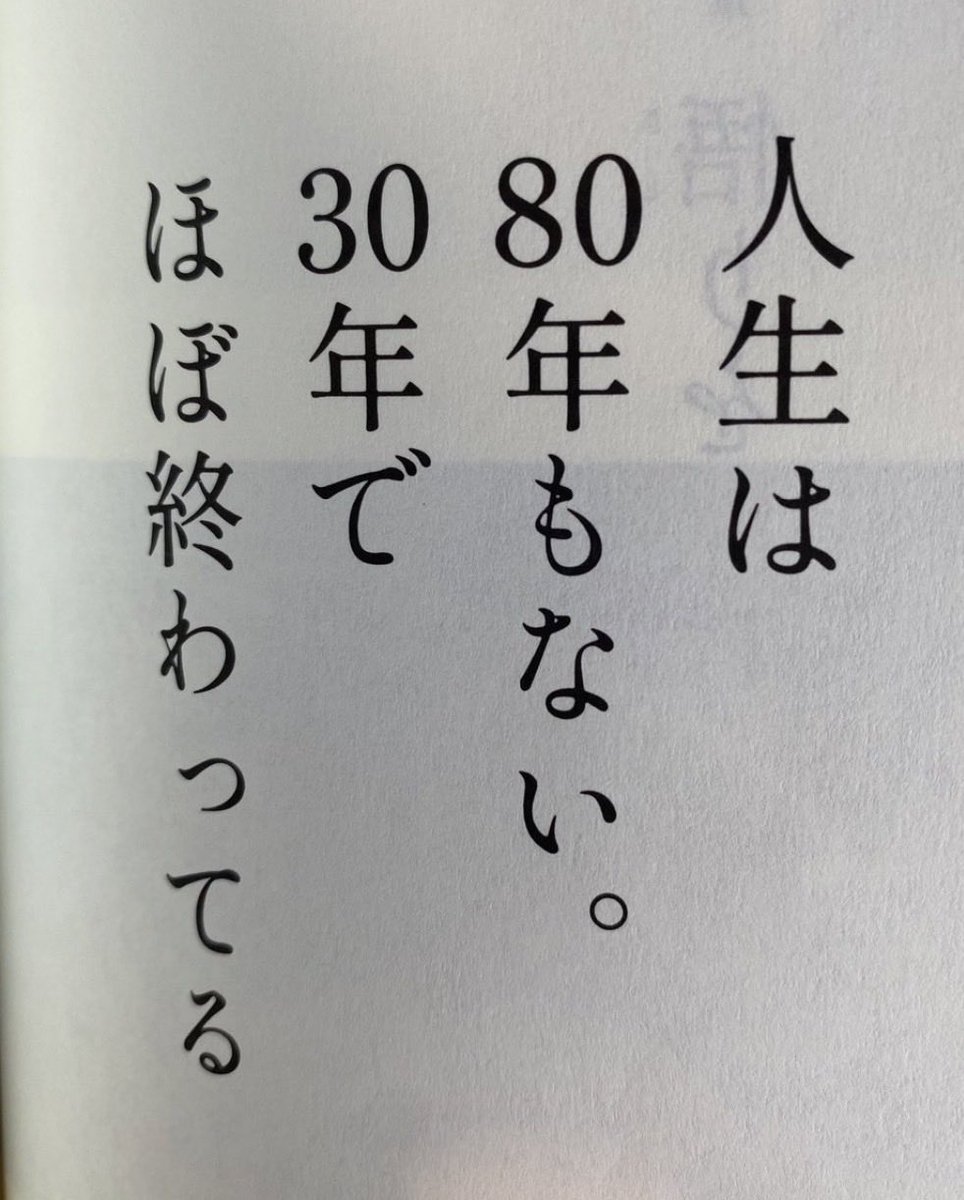 人生は
80年もない。
30年で
ほぼ終わってる